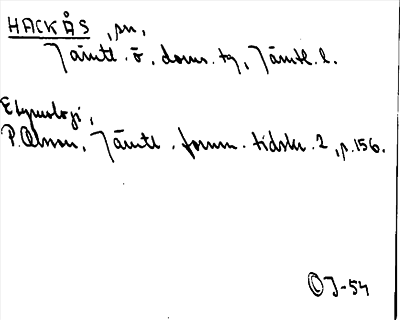 HACKÅS, sn,
Jämtl. ö, doms. tg, Jämtl. l.
Etymologi,
P. Olsson, Jämtl. fornm. tidskr. 2, p. 156.
OJ-54